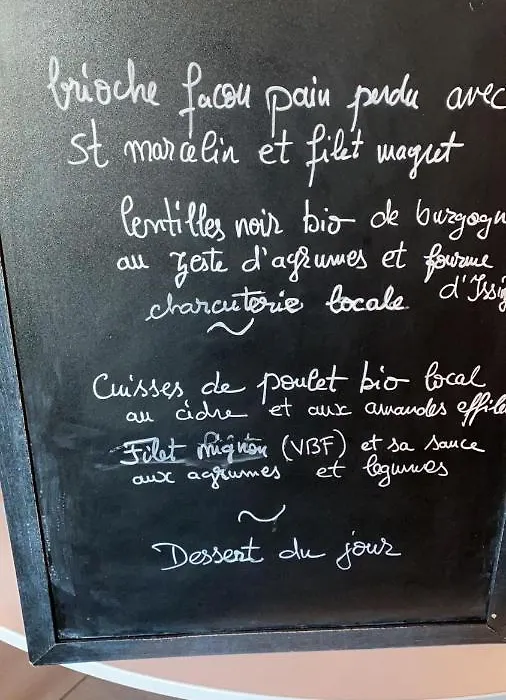 brioche facon pain perdu avec
St marcelin et filet magret
lentilles noir bio de burgogn
au zeste d'agrumes et fourme
charcuterie locale d'Issig
~
Cuisses de poulet bio local
au cidre et aux amandes effile
Filet mignon (VBF) et sa sauce
aux agrumes et legumes
~
Dessert du jour